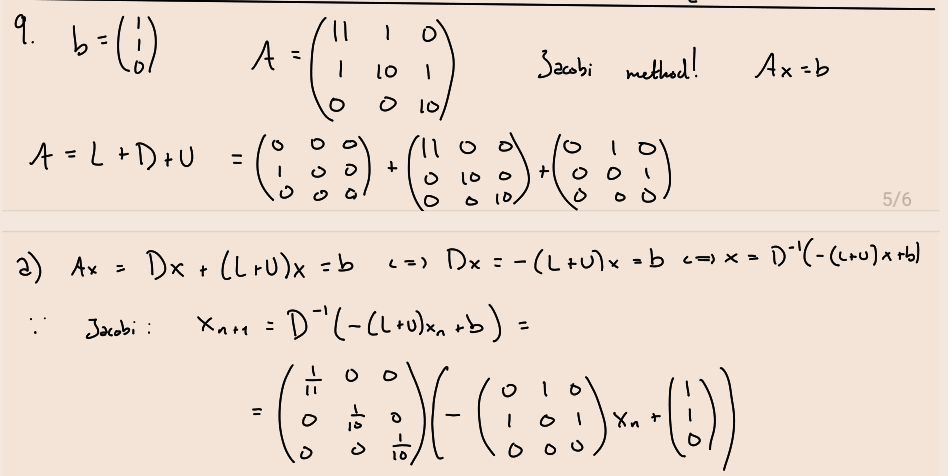 9. b = (1 1 0) A = (11 1 0; 1 10 1; 0 0 10) Jacobi method! Ax = b
A = L + D + U = (0 0 0; 1 0 0; 0 0 0) + (11 0 0; 0 10 0; 0 0 10) + (0 1 0; 0 0 1; 0 0 0)
5/6
a) Ax = Dx + (L+U)x = b <=> Dx = -(L+U)x = b <=> x = D⁻¹(-(L+U)x+b)
∵ Jacobi: xₙ₊₁ = D⁻¹(-(L+U)xₙ + b) =
= (1/11 0 0; 0 1/10 0; 0 0 1/10) (- (0 1 0; 1 0 1; 0 0 0) xₙ + (1 1 0))